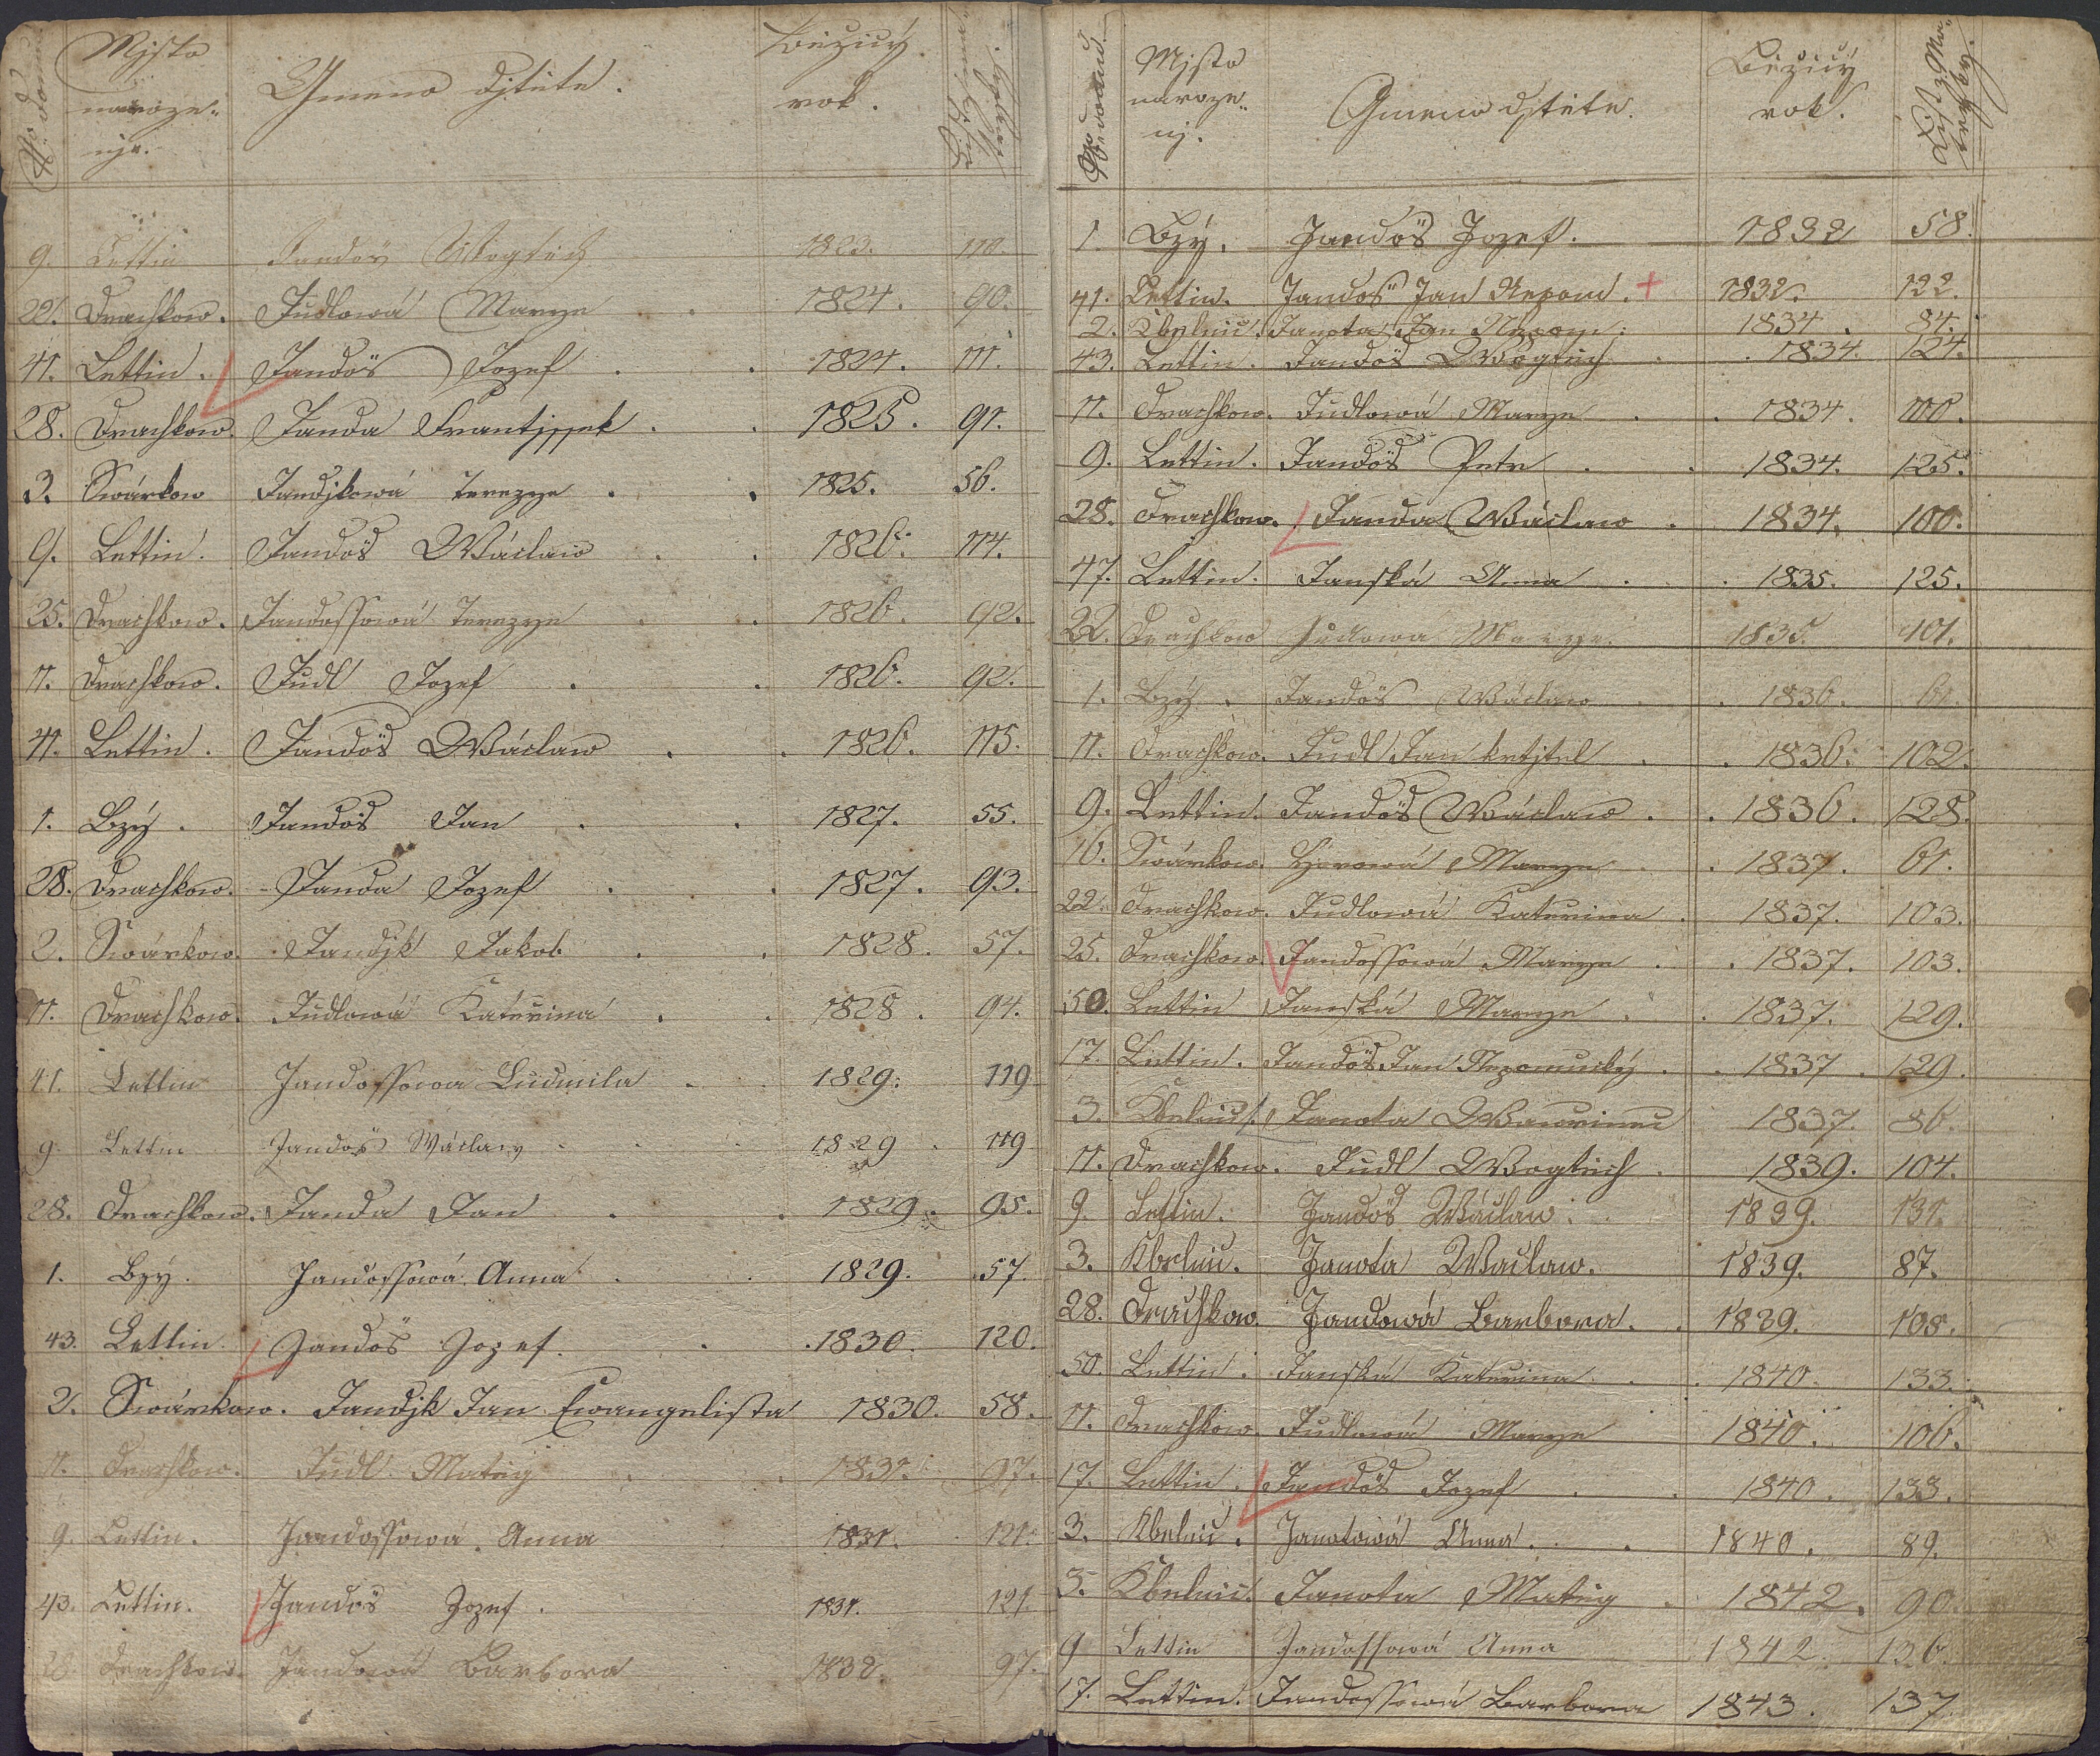 No domu
Mjsto narozenj.
Gmeno djtěte.
Běžicý rok.
List z Matryky.
9. Lettin Jandoš Wogtěch 1823. 110.
22. Drachkow. Judlowá Marye 1824. 90.
41. Lettin. Jandoš Jozef 1824. 111.
28. Drachkow. Janda Frantjssek 1825. 91.
3. Swárkow Jandjkowá Terezye 1825. 56.
9. Lettin. Jandoš Wáclaw 1826. 114.
25. Drachkow. Jandossowá Terezye 1826. 92.
11. Drachkow. Judl Jozef 1826. 92.
41. Lettin. Jandoš Wáclaw 1826. 115.
1. Bzý. Jandoš Jan 1827. 55.
28. Drachkow. Janda Jozef 1827. 93.
2. Swárkow. Jandjk Jakob 1828. 57.
11. Drachkow. Judlowá Kateřina 1828. 94.
41. Lettin Jandossowa Ludmila 1829. 119
9 Lettin Jandoš Wáclaw 1829 119
28. Drachkow. Janda Jan 1829. 95.
1. Bzý. Jandossowá Anna 1829. 57.
43. Lettin. Jandoš Jozef. 1830. 120.
2. Swárkow. Jandjk Jan Ewangelista 1830. 58.
11. Drachkow. Judl Matěg 1831. 97.
9. Lettin. Jandossowá Anna 1831. 121.
43. Lettin. Jandoš Jozef. 1831. 121.
28. Drachkow. Jandowá Barbora 1832. 97.
No domu
Mjsto narozenj.
Gmeno djtěte.
Běžicý rok.
List z Matryky.
1. Bzý. Jandoš Jozef. 1832 58.
41. Lettin. Jandoš Jan Nepom. + 1832. 122.
2. Kbelnic. Janota Jan Nepom. 1834. 84.
43. Lettin. Jandoš Wogtěch 1834. 124.
11. Drachkow. Judlowá Marye 1834. 100.
9. Lettin. Jandoš Petr 1834. 125.
28. Drachkow. Janda Wáclaw 1834. 100.
47. Lettin. Janská Anna 1835. 125.
22. Drachkow Judlowa Marye. 1835. 101.
1. Bzý. Jandoš Wáclaw 1836. 61.
11. Drachkow. Judl Jan křtjtel 1836. 102.
9. Lettin. Jandoš Wáclaw 1836. 128.
16. Swárkow. Marye 1837. 61.
22. Drachkow. Judlowá Kateřina 1837. 103.
25. Drachkow. Jandossowá Marye 1837. 103.
50. Lettin Janská Marye 1837. 129.
17. Lettin. Jandoš Jan Nepomucký 1837. 129.
3. Kbelnic. Janota Wawřinec 1837. 86.
11. Drachkow. Judl Wogtěch 1839. 104.
9. Lettin. Jandoš Wáclaw. 1839. 131.
3. Kbelnic. Janota Waclaw. 1839. 87.
28. Drachkow. Jandowá Barbora. 1839. 105.
50. Lettin. Janská Kateřina 1840. 133.
11. Drachkow. Judlowá Marye 1840. 106.
17. Lettin. Jandoš Jozef 1840. 133.
3. Kbelnic. Janotowá Anna. 1840. 89.
3. Kbelnic. Janota Matěg 1842. 90.
9 Lettin Jandossowá Anna 1842. 136.
17. Lettin. Jandossowá Barbora 1843. 137.